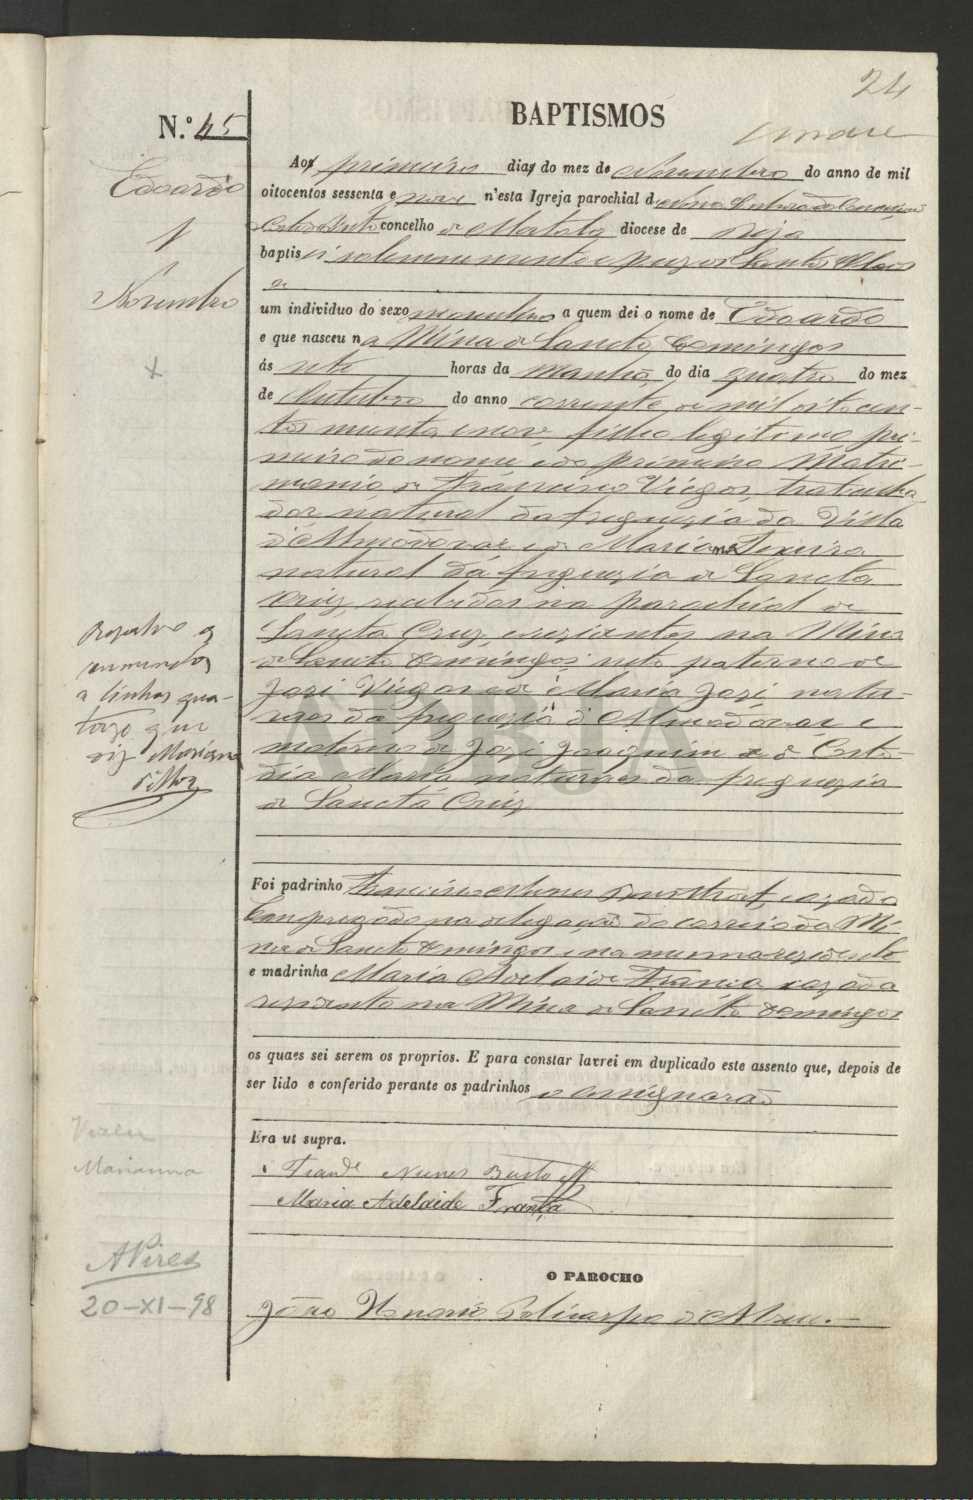 24
BAPTISMOS
N.º 45
Edoardo
1
Novembro
Aos primeiro dias do mez de Novembro do anno de mil
oitocentos sessenta e nove n'esta Igreja parochial de
concelho de Mertola diocese de Beja
baptisei solemnemente e puz os Santos Oleos
a
um individuo do sexo masculino a quem dei o nome de Edoardo
e que nasceu na Mina de Sancto Domingos
ás sete horas da manhã do dia quatro do mez
de Outubro do anno corrente de mil oitocen-
tos nove, filho legitimo pri-
meiro do nome e do primeiro Matri-
monio de Francisco Viegas, trabalha-
dor, natural da freguezia da Villa
d'Almodovar e de Marianna Teixeira
natural da freguezia de Sancta
Cruz, recebidos na parochial de
Sancta Cruz, e residentes na Mina
de Sancto Domingos; neto paterno de
José Viegas e de Maria José, natu-
raes da freguezia d'Almodovar e
materno de José Joaquim e de Custo-
dia Maria naturaes da freguezia
de Sancta Cruz
Resalvo a
emenda
a linhas qua-
torze que
diz Marianna
ADBJA
Foi padrinho Francisco Nunes cazado
Empregado na delegação do correio da Mi-
na de Sancto Domingos e na mesma residente
e madrinha Maria Adelaide Franca cazada
residente na Mina de Sancto Domingos
os quaes sei serem os proprios. E para constar lavrei em duplicado este assento que, depois de
ser lido e conferido perante os padrinhos o assignarão
Era ut supra.
Nunes
Maria Adelaide França
Marianna
APires
20-XI-98
O PAROCHO
João Policarpo d'Abreu